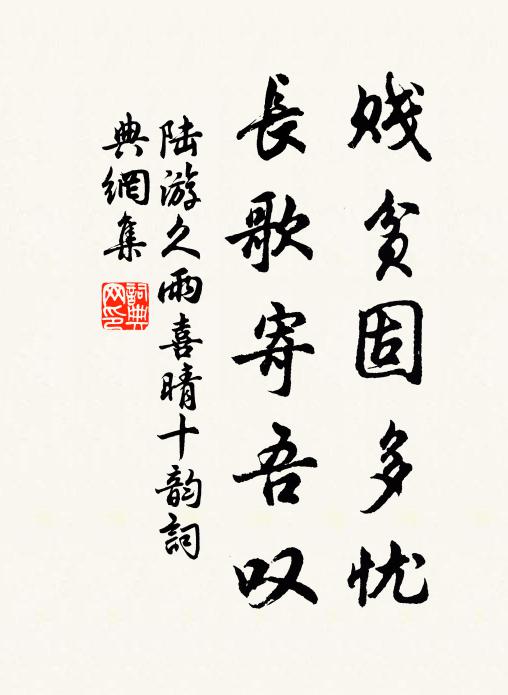 贱贫固多忧
長歌寄吾叹
陆游久雨喜晴十韵詞
典網集
詞典
网印